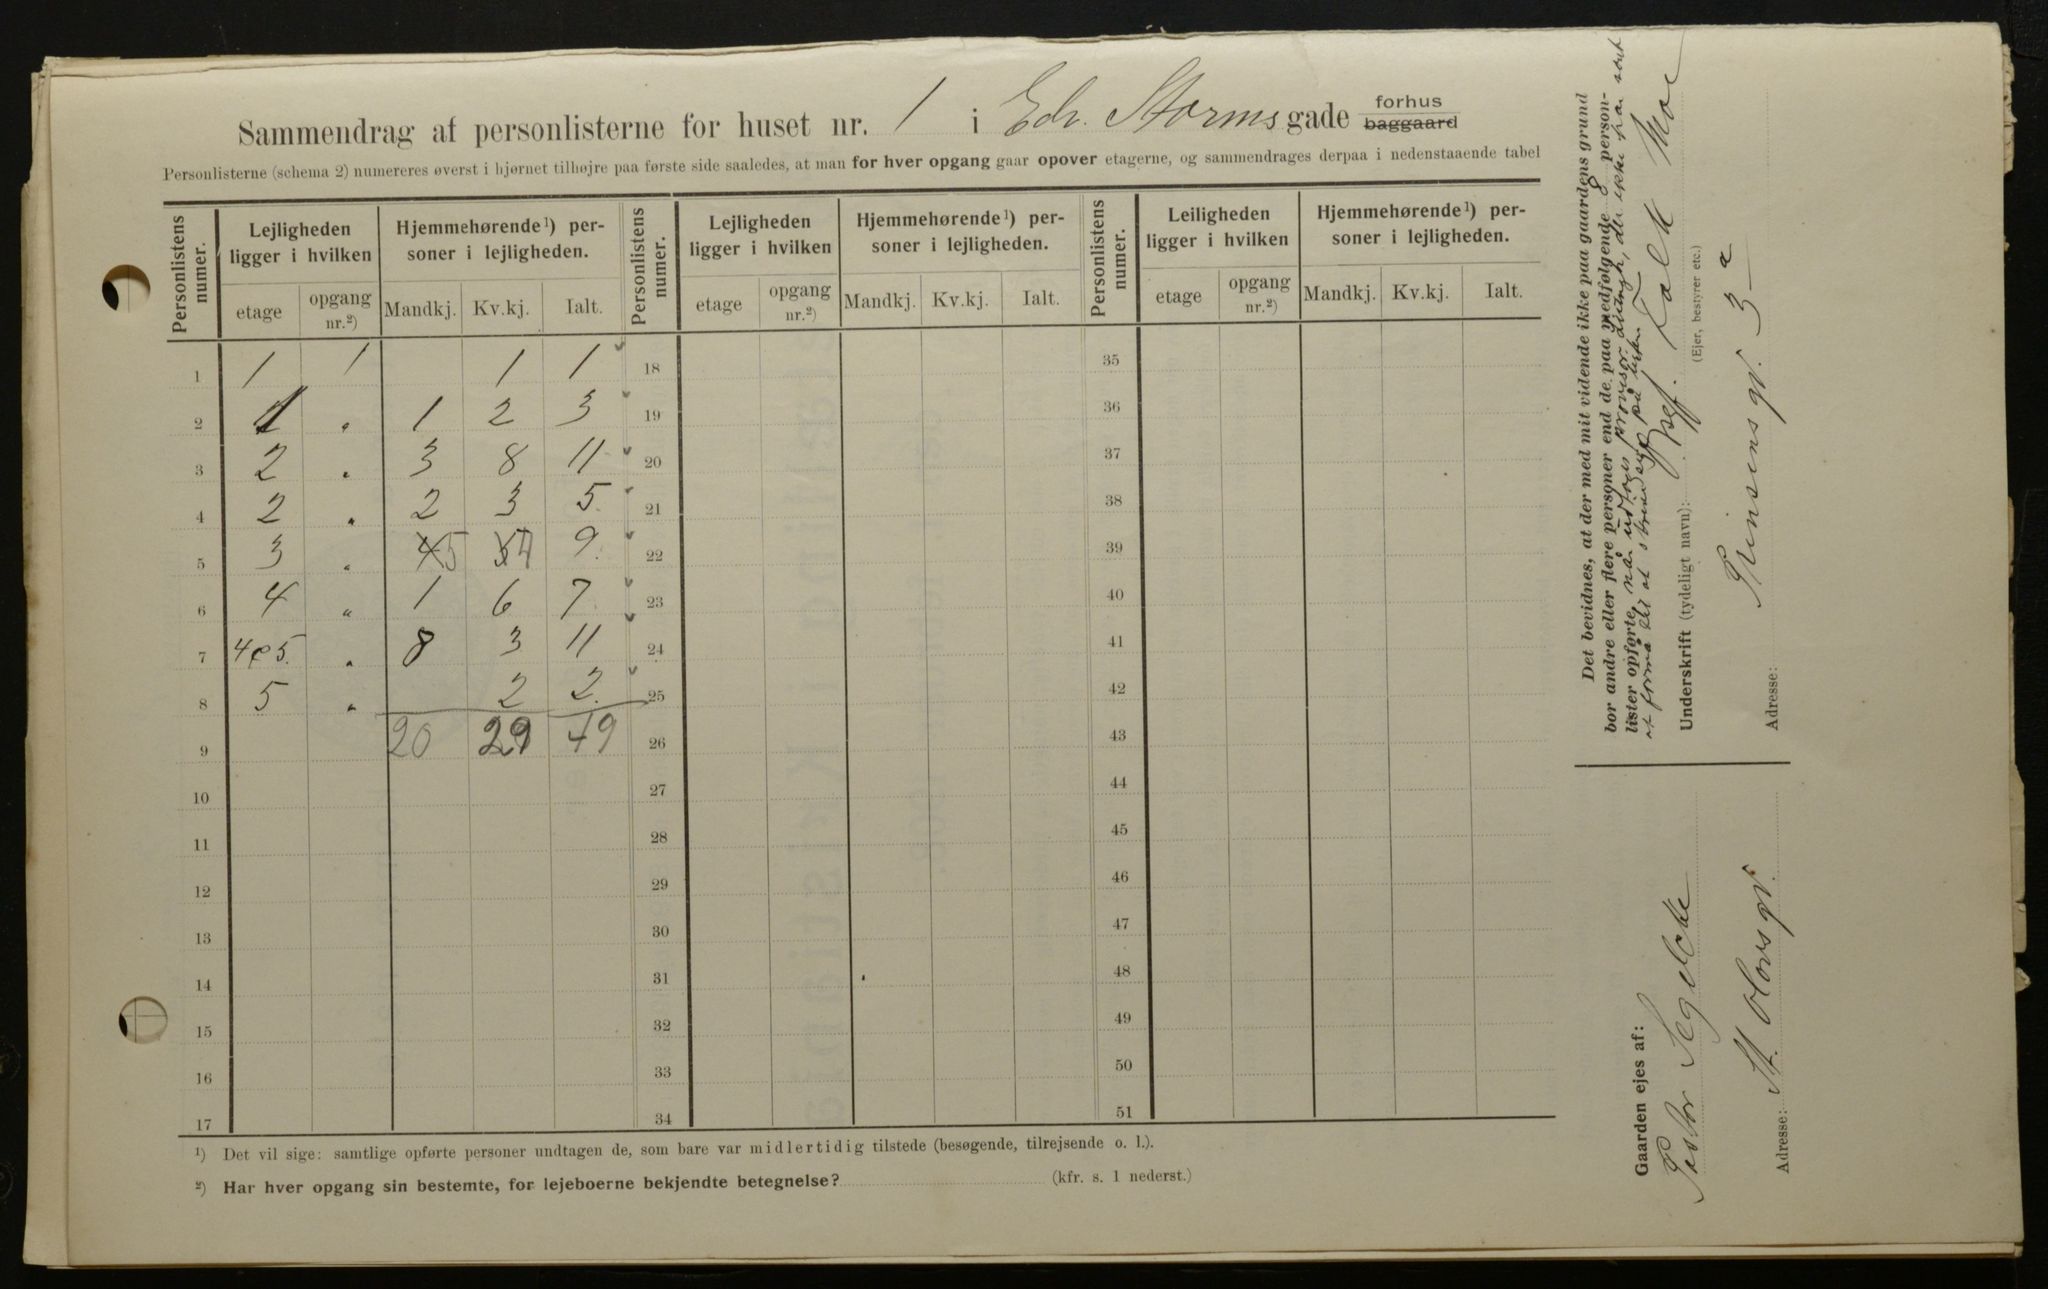 Sammendrag af personlisterne for huset nr. 1 i Edv. Stormsgade forhus
baggaard
Personlisterne (schema 2) numereres øverst i hjørnet tilhøjre paa første side saaledes, at man for hver opgang gaar opover etagerne, og sammendrages derpaa i nedenstaaende tabel
Personlistens numer. Lejligheden ligger i hvilken Hjemmehørende¹) personer i lejligheden. Personlistens numer. Lejligheden ligger i hvilken Hjemmehørende¹) personer i lejligheden. Personlistens numer. Leiligheden ligger i hvilken Hjemmehørende¹) personer i lejligheden.
etage opgang nr.²) Mandkj. Kv.kj. Ialt. etage opgang nr.²) Mandkj. Kv.kj. Ialt. etage opgang nr.²) Mandkj. Kv.kj. Ialt.
1 1 1 1 1 18 35
2 1 " 1 2 3 19 36
3 2 " 3 8 11 20 37
4 2 " 2 3 5 21 38
5 3 " 4 5 5 4 9 22 39
6 4 " 1 6 7 23 40
7 4 & 5. " 8 3 11 24 41
8 5 " 2 2 25 42
9 20 29 49 26 43
10 27 44
11 28 45
12 29 46
13 30 47
14 31 48
15 32 49
16 33 50
17 34 51
¹) Det vil sige: samtlige opførte personer undtagen de, som bare var midlertidig tilstede (besøgende, tilrejsende o. l.).
²) Har hver opgang sin bestemte, for lejeboerne bekjendte betegnelse? (kfr. s. 1 nederst.)
Det bevidnes, at der med mit vidende ikke paa gaardens grund
bor andre eller flere personer end de paa medfølgende 8 person-
lister opførte, når undtages provisor, der ikke par
at formå til at skrive sig på listen
Underskrift (tydeligt navn): Falk Moe
(Ejer, bestyrer etc.)
Adresse: Prinsens gt. 3 a
Gaarden ejes af:
Pastor Segelcke
Adresse: St. Olavs gt.